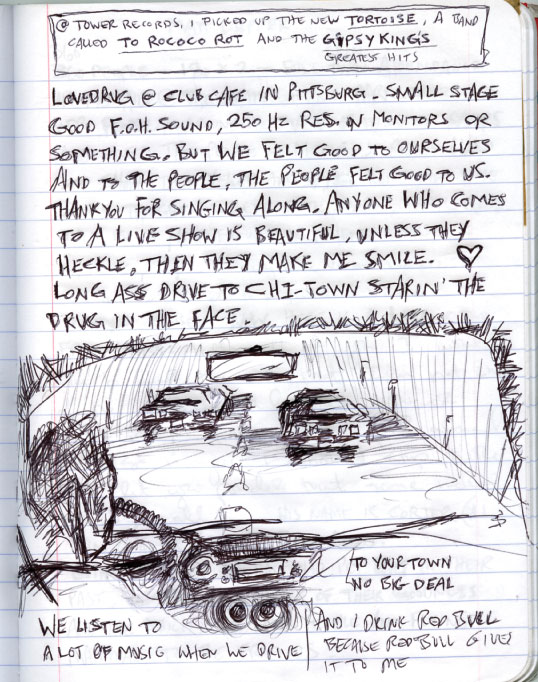 @ TOWER RECORDS, I PICKED UP THE NEW TORTOISE, A BAND
CALLED TO ROCOCO ROT AND THE GIPSY KINGS
GREATEST HITS
LOVEDRUG @ CLUB CAFE IN PITTSBURG. SMALL STAGE
GOOD F.O.H. SOUND, 250 HZ RES. IN MONITORS OR
SOMETHING. BUT WE FELT GOOD TO OURSELVES
AND TO THE PEOPLE, THE PEOPLE FELT GOOD TO US.
THANKYOU FOR SINGING ALONG. ANYONE WHO COMES
TO A LIVE SHOW IS BEAUTIFUL, UNLESS THEY
HECKLE, THEN THEY MAKE ME SMILE.
LONG ASS DRIVE TO CHI-TOWN STARIN' THE
DRUG IN THE FACE.
TO YOUR TOWN
NO BIG DEAL
WE LISTEN TO
A LOT OF MUSIC WHEN WE DRIVE
AND I DRINK RED BULL
BECAUSE RED BULL GIVES
IT TO ME